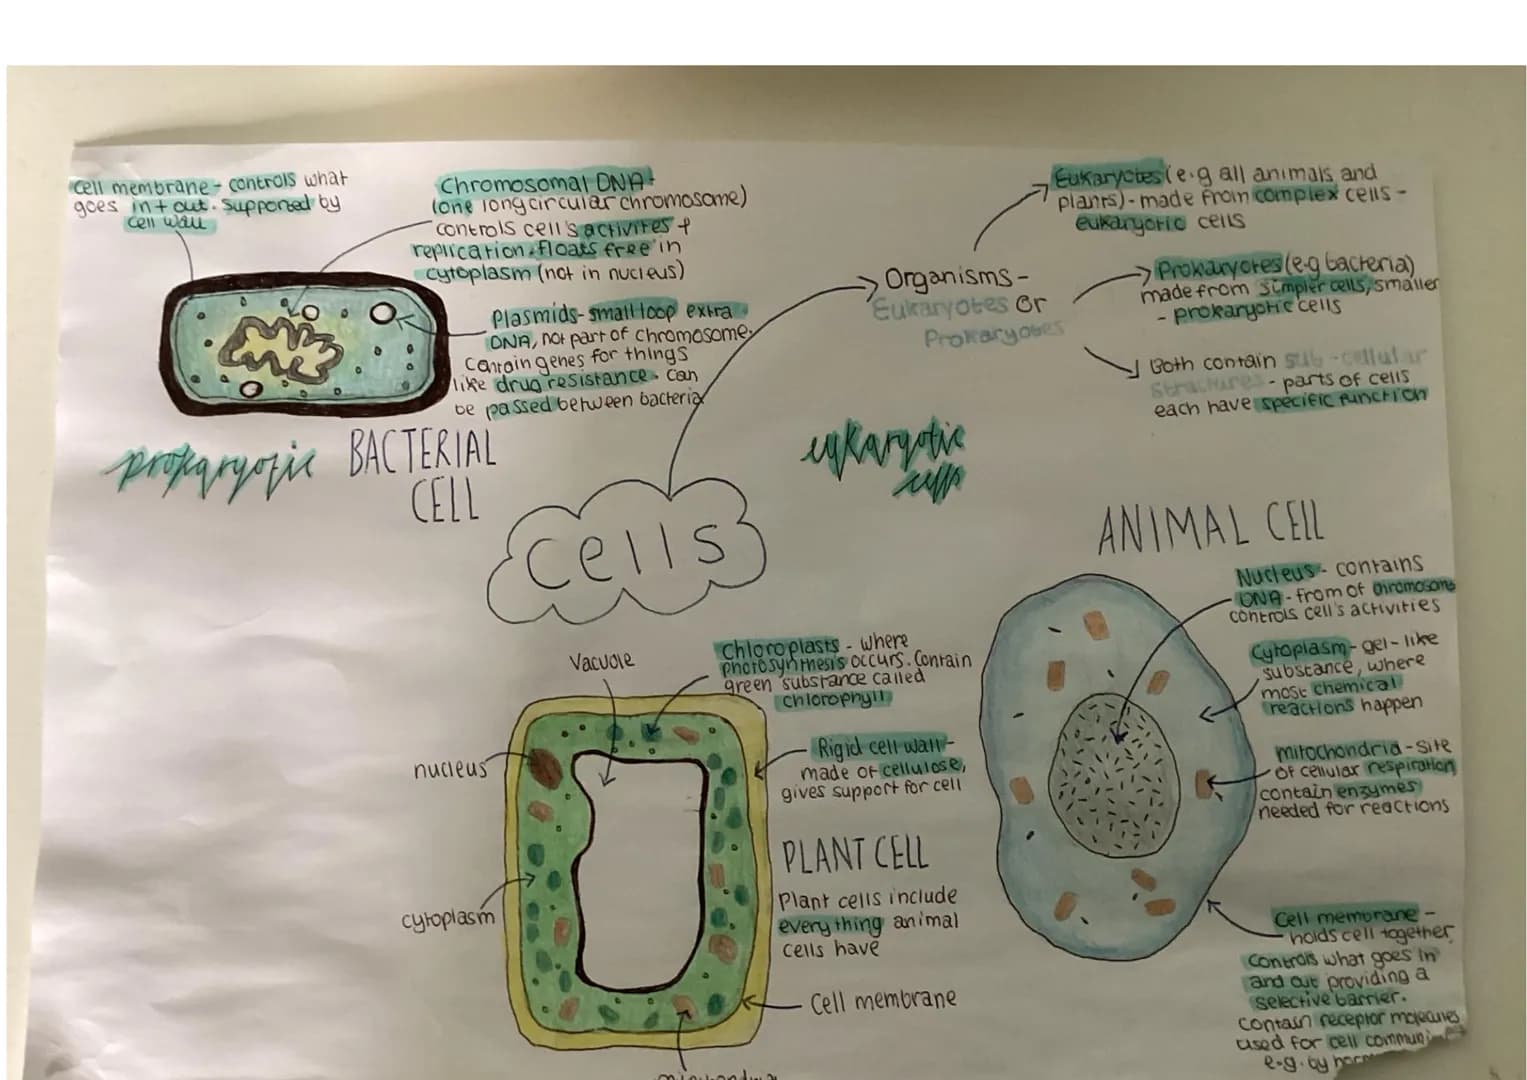 Cell membrane - controls what
goes in + out. Supported by
cell wall
Chromosomal DNA -
(one long circular chromosome)
controls cell's activites +
replication. floats free in
cytoplasm (not in nucleus)
Plasmids - small loop extra
DNA, not part of chromosome.
Contain genes for things
like drug resistance. Can
be passed between bacteria
prokaryotic
BACTERIAL
CELL
Organisms -
Eukaryotes or
Prokaryotes
Eukaryotes (e.g all animals and
plants) - made from complex cells -
eukaryotic cells
Prokaryotes (e.g bacteria)
made from simpler cells, smaller
- prokaryotic cells
Both contain sub-cellular
structures - parts of cells
each have specific function
eukaryotic
cells
cells
ANIMAL CELL
Nucleus - contains
DNA - from of chromosome
controls cell's activities
Cytoplasm - gel-like
substance, where
most chemical
reactions happen
mitochondria - site
of cellular respiration
contain enzymes
needed for reactions
Cell membrane -
holds cell together,
controls what goes in
and out providing a
selective barrier.
contain receptor molecules
used for cell
e.g. by
Vacuole
Chloroplasts - where
photosynthesis occurs. Contain
green substance called
chlorophyll
nucleus
Rigid cell wall -
made of cellulose,
gives support for cell
cytoplasm
PLANT CELL
Plant cells include
everything animal
cells have
Cell membrane